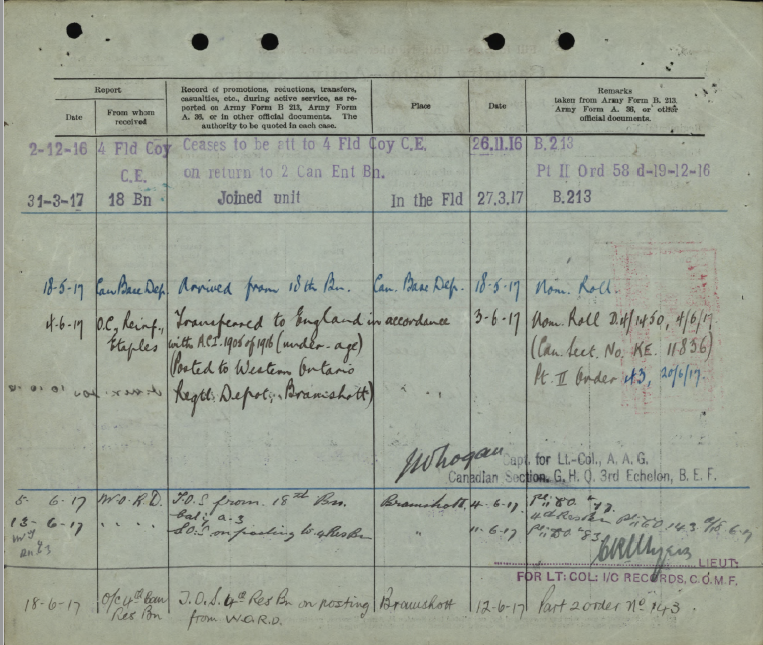 Report
Date
From whom
received
Record of promotions, reductions, transfers,
casualties, etc., during active service, as re-
ported on Army Form B 213, Army Form
A. 36, or in other official documents. The
authority to be quoted in each case.
Place
Date
Remarks
taken from Army Form B. 213,
Army Form A. 36, or other
official documents.
2-12-16 4 Fld Coy Ceases to be att to 4 Fld Coy C.E. 26.11.16 B.213
C.E. on return to 2 Can Ent Bn. Pt II Ord 58 d-19-12-16
31-3-17 18 Bn Joined unit In the Fld 27.3.17 B.213
18-5-17 Can Base Dep. Arrived from 18th Bn. Can. Base Dep. 18-5-17 Nom. Roll.
4-6-17 O.C. Reinf., Transferred to England in accordance 3-6-17 Nom. Roll D.4/1450, 4/6/17
Etaples with A.C.I. 1905 of 1916 (under-age) (Can. Sect. No. KE. 11836)
(Posted to Western Ontario Pt. II Order 43, 20/6/17.
Regtl. Depot, Bramshott) " "
Capt. for Lt.-Col., A. A. G.
Canadian Section, G. H. Q. 3rd Echelon, B. E. F.
5- 6-17 W.O.R.D. T.O.S from 18th Bn. Bramshott. 4-6-17
Cat: a-3
13- 6-17 " " " " S.O.S on posting to 4 Res Bn " 11-6-17
LIEUT:
FOR LT: COL: I/C RECORDS, C.O.M.F.
18-6-17 O/C 4th Can T.O.S. 4th Res Bn on posting Bramshott 12-6-17 Part 2 order No 143.
Res Bn from W.O.R.D.